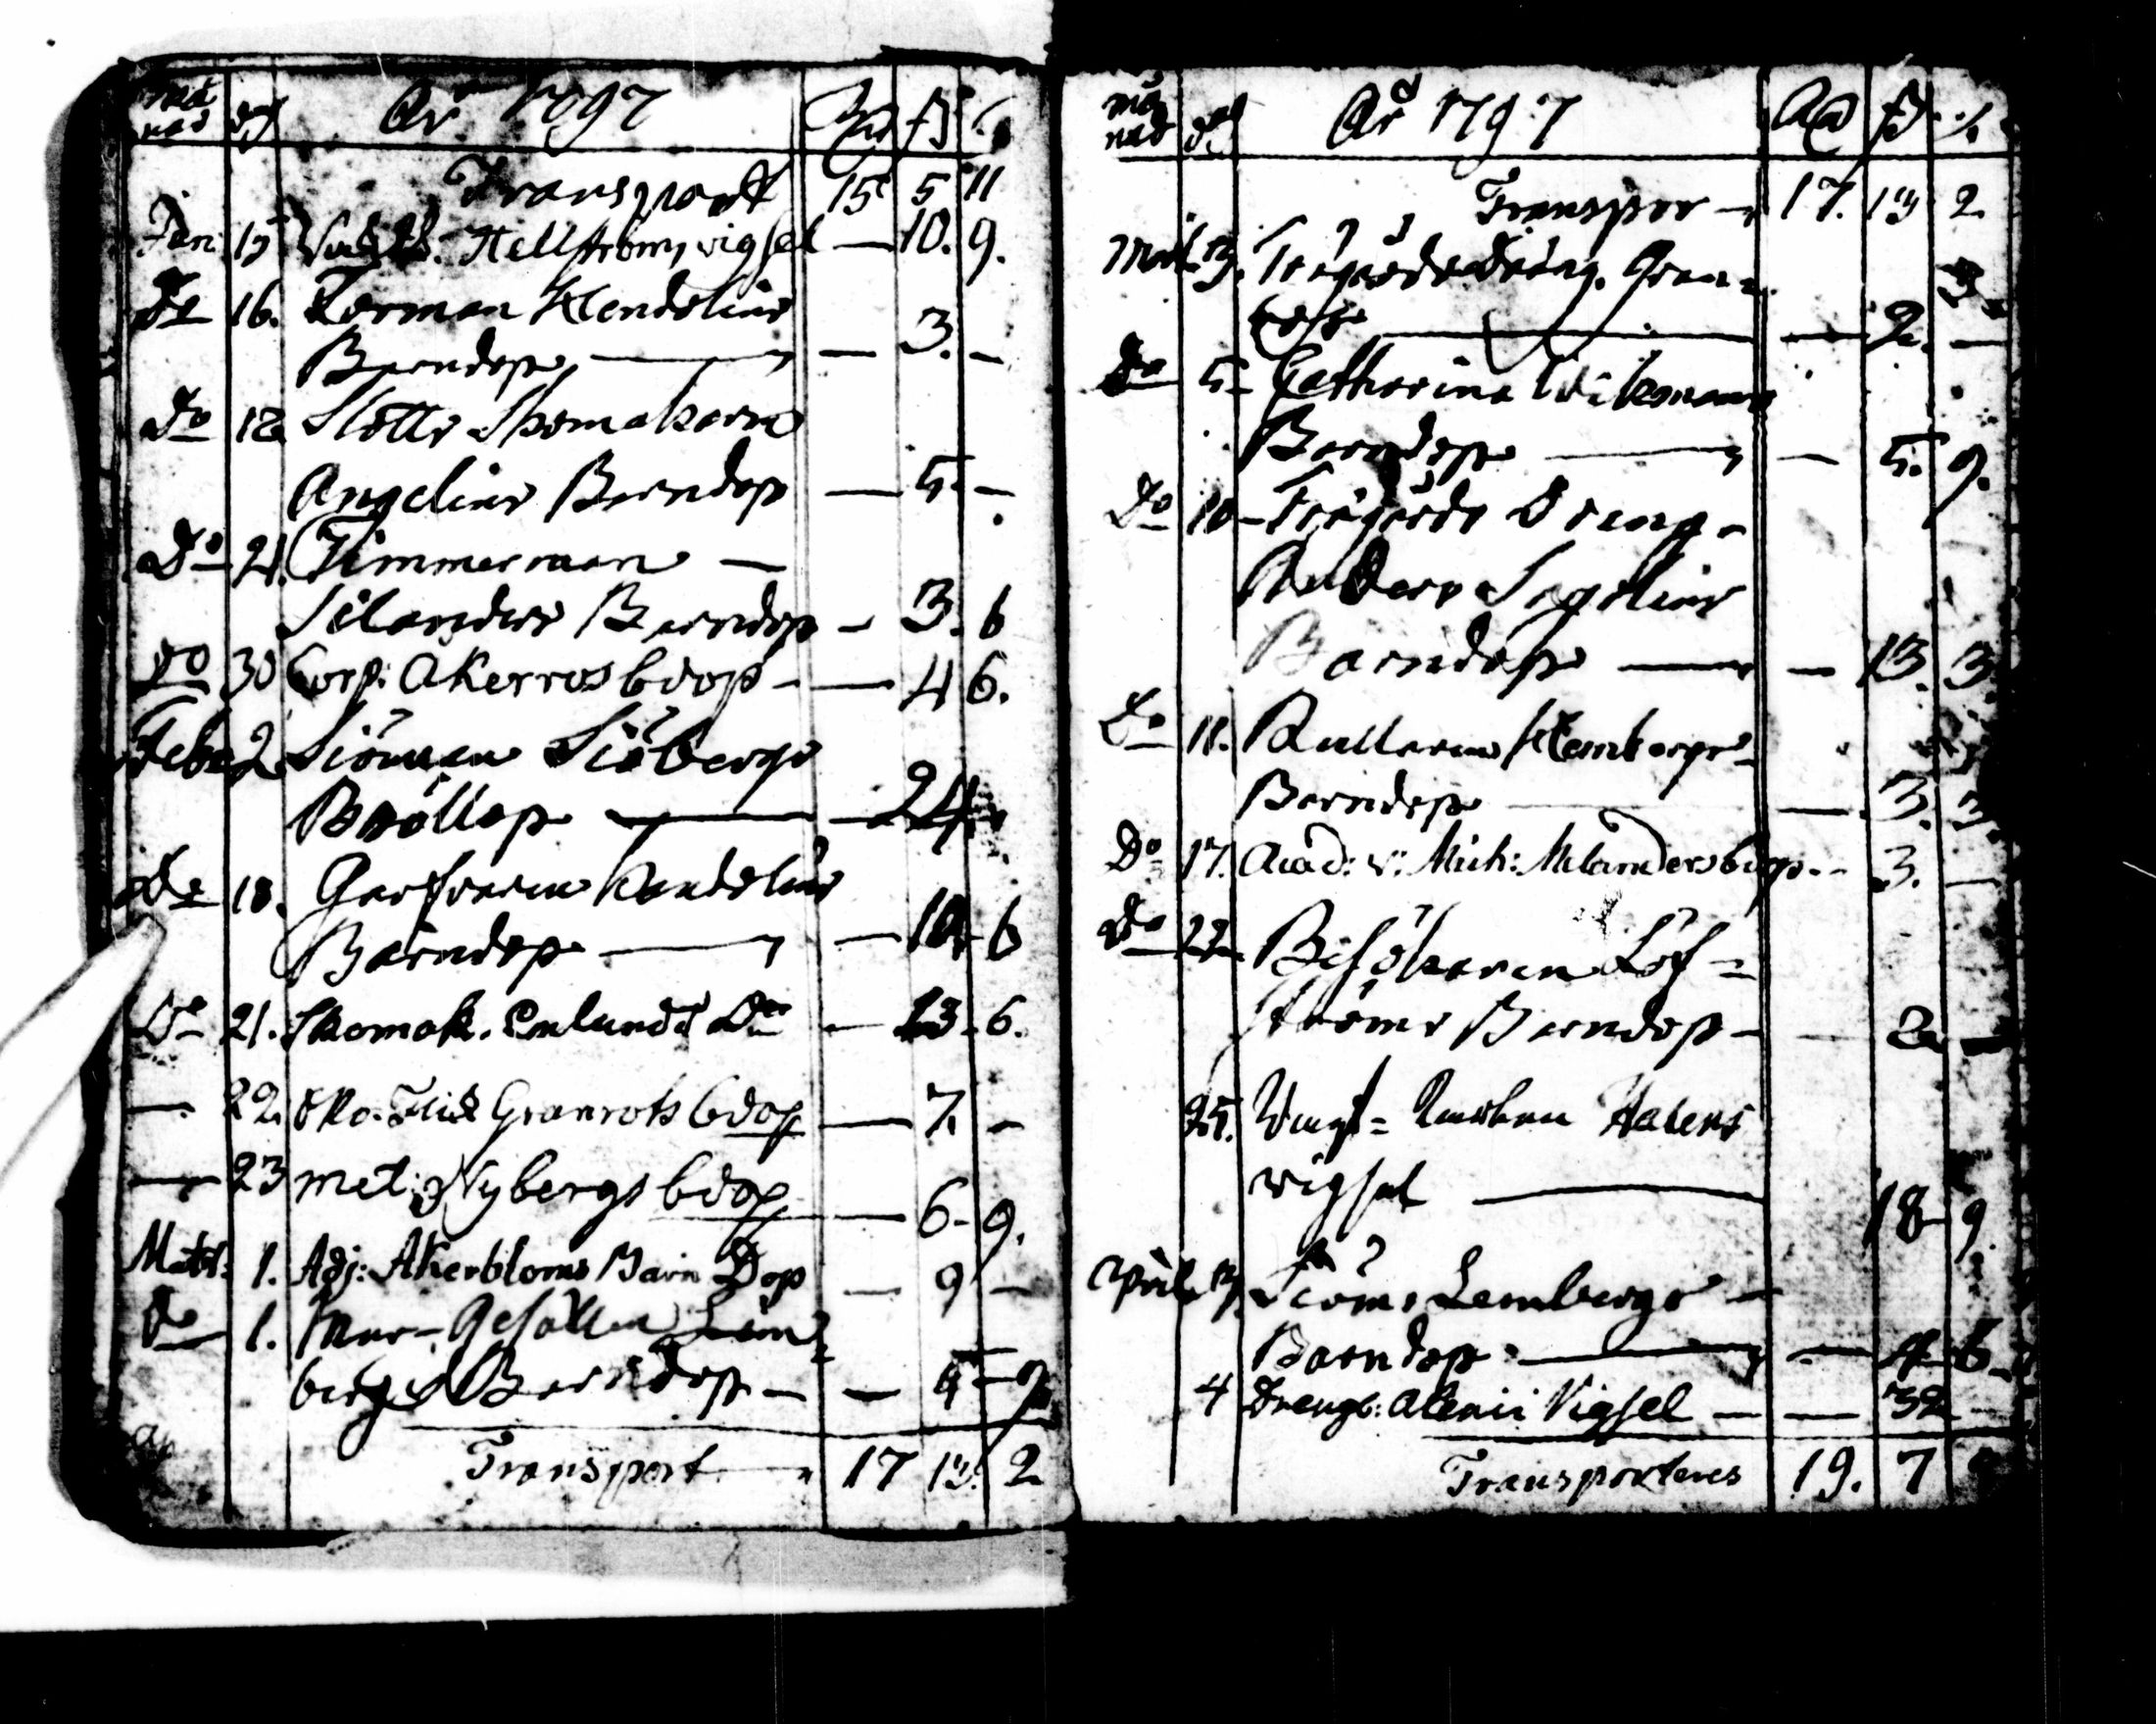 Må
nad dag År 1797 Rd ß
Transport 15 5 11
Jan: 15 Hellströms vigsel — 10. 9.
Do 16. Kendelins
Barndop — — 3. —
Do 18 Slotts Skomakarn
Angelins Barndop — 5. —
Do 21. Timmerman —
Silanders Barndop — 3. 6
Do 30 Corp: Akerros bdop — — 4 6.
Feb: 2. Siöman Siöbergs
Bröllop — — 24
Do 18. Garfvaren Kendelins
Barndop — — 10 6
Do 21. Skomak. Enlunds Do — 13. 6.
— 22. Granrots bdop — 7. —
— 23 met: Nybergs bdop — 6. 9.
Marts: 1. Adj: Akerbloms Barn Dop — 9 —
Do 1. Mur-Gesällen Lem=
bergs Barndop — — 5 9
Transport — 17 13. 2
må
nad dag År 1797 Rd ß
Transpor — 17. 13 2
Mrt. 3. Trägårds Dräng. Gran=
— 2. —
Do 5. Catharina Wikmans
Barndop — — 5. 9.
Do 10 Trägårds Dreng-
Anders Segelins
Barndop — — 13. 3.
Do 11. Kullaren Hembergs
Barndop — 3. 3.
Do 17. Acad: v: Mich: Melanders bdop -- 3. —
Do 22. Besökaren Löf=
ströms Barndop — 2 —
25. Halens
vigsel — 18 9.
April 3. Siöm: Lembergs —
Barndop — — 4 6
4 Drengs: Alenii Vigsel — — 32 —
Transporteres 19. 7